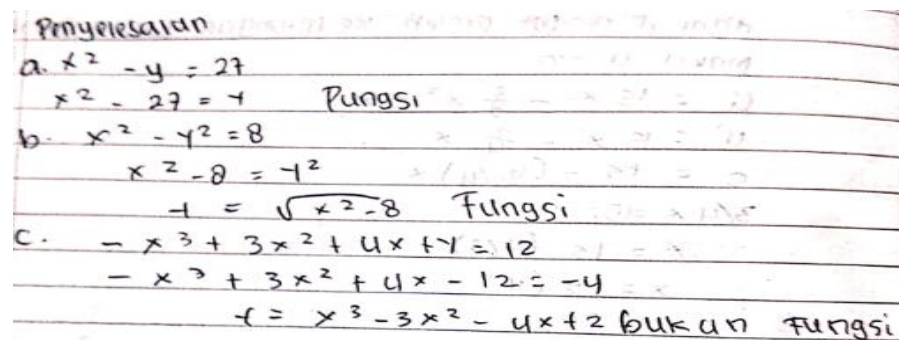 Penyelesaian
a. x² - y = 27
x² - 27 = y Pungsi
b. x² - y² = 8
x² - 8 = y²
y = √x² - 8 Fungsi
c. - x³ + 3x² + 4x + y = 12
- x³ + 3x² + 4x - 12 = -y
y = x³ - 3x² - 4x + 2 bukan Fungsi